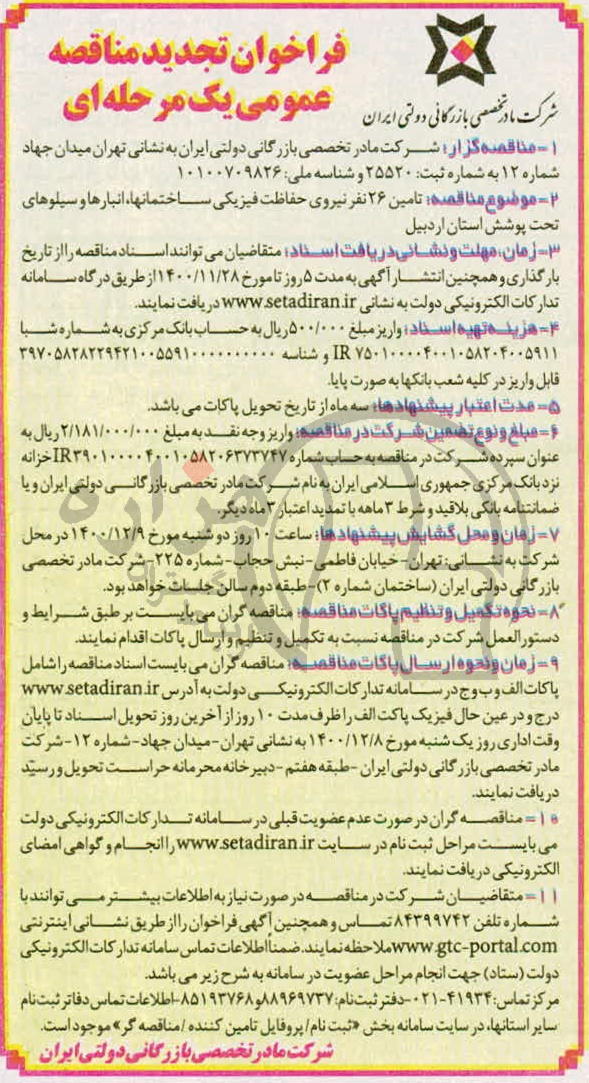 فراخوان تجدید مناقصه
عمومی یک مرحله‌ای
شرکت مادر تخصصی بازرگانی دولتی ایران
۱- مناقصه‌گزار: شرکت مادر تخصصی بازرگانی دولتی ایران به نشانی تهران میدان جهاد
شماره ۱۲ به شماره ثبت: ۲۵۵۲۰ و شناسه ملی: ۱۰۱۰۰۷۰۹۸۲۶
۲- موضوع مناقصه: تامین ۲۶ نفر نیروی حفاظت فیزیکی ساختمانها، انبارها و سیلوهای
تحت پوشش استان اردبیل
۳- زمان، مهلت و نشانی دریافت اسناد: متقاضیان می توانند اسناد مناقصه را از تاریخ
بارگذاری و همچنین انتشار آگهی به مدت ۵ روز تا مورخ ۱۴۰۰/۱۱/۲۸ از طریق درگاه سامانه
تدارکات الکترونیکی دولت به نشانی www.setadiran.ir دریافت نمایند.
۴- هزینه تهیه اسناد: واریز مبلغ ۵۰۰/۰۰۰ ریال به حساب بانک مرکزی به شماره شبا
IR ۷۵۰۱۰۰۰۰۴۰۰۱۰۵۸۲۰۴۰۰۵۹۱۱ و شناسه ۳۹۷۰۵۸۲۸۲۲۹۴۲۱۰۰۵۵۹۱۰۰۰۰۰۰۰۰۰۰
قابل واریز در کلیه شعب بانکها به صورت پایا.
۵- مدت اعتبار پیشنهادها: سه ماه از تاریخ تحویل پاکات می باشد.
۶- مبلغ و نوع تضمین شرکت در مناقصه: واریز وجه نقد به مبلغ ۲/۱۸۱/۰۰۰/۰۰۰ ریال به
عنوان سپرده شرکت در مناقصه به حساب شماره IR۳۹۰۱۰۰۰۰۴۰۰۱۰۵۸۲۰۶۳۷۳۷۴۷ خزانه
نزد بانک مرکزی جمهوری اسلامی ایران به نام شرکت مادر تخصصی بازرگانی دولتی ایران و یا
ضمانتنامه بانکی بلاقید و شرط ۳ ماهه با تمدید اعتبار ۳ ماه دیگر.
۷- زمان و محل گشایش پیشنهادها: ساعت ۱۰ روز دوشنبه مورخ ۱۴۰۰/۱۲/۹ در محل
شرکت به نشانی: تهران - خیابان فاطمی - نبش حجاب - شماره ۲۲۵- شرکت مادر تخصصی
بازرگانی دولتی ایران (ساختمان شماره ۲) - طبقه دوم سالن جلسات خواهد بود.
۸- نحوه تکمیل و تنظیم پاکات مناقصه: مناقصه گران می بایست بر طبق شرایط و
دستورالعمل شرکت در مناقصه نسبت به تکمیل و تنظیم و ارسال پاکات اقدام نمایند.
۹- زمان و نحوه ارسال پاکات مناقصه: مناقصه گران می بایست اسناد مناقصه را شامل
پاکات الف و ب و ج در سامانه تدارکات الکترونیکی دولت به آدرس www.setadiran.ir
درج و در عین حال فیزیک پاکت الف را ظرف مدت ۱۰ روز از آخرین روز تحویل اسناد تا پایان
وقت اداری روز یک شنبه مورخ ۱۴۰۰/۱۲/۸ به نشانی تهران - میدان جهاد - شماره ۱۲- شرکت
مادر تخصصی بازرگانی دولتی ایران - طبقه هفتم - دبیرخانه محرمانه حراست تحویل و رسید
دریافت نمایند.
۱۰- مناقصه گران در صورت عدم عضویت قبلی در سامانه تدارکات الکترونیکی دولت
می بایست مراحل ثبت نام در سایت www.setadiran.ir را انجام و گواهی امضای
الکترونیکی دریافت نمایند.
۱۱- متقاضیان شرکت در مناقصه در صورت نیاز به اطلاعات بیشتر می توانند با
شماره تلفن ۸۴۳۹۹۷۴۲ تماس و همچنین آگهی فراخوان را از طریق نشانی اینترنتی
www.gtc-portal.com ملاحظه نمایند. ضمناً اطلاعات تماس سامانه تدارکات الکترونیکی
دولت (ستاد) جهت انجام مراحل عضویت در سامانه به شرح زیر می باشد.
مرکز تماس: ۴۱۹۳۴-۰۲۱- دفتر ثبت نام: ۸۸۹۶۹۷۳۷ و ۸۵۱۹۳۷۶۸- اطلاعات تماس دفاتر ثبت نام
سایر استانها، در سایت سامانه بخش «ثبت نام / پروفایل تامین کننده / مناقصه گر» موجود است.
شرکت مادر تخصصی بازرگانی دولتی ایران